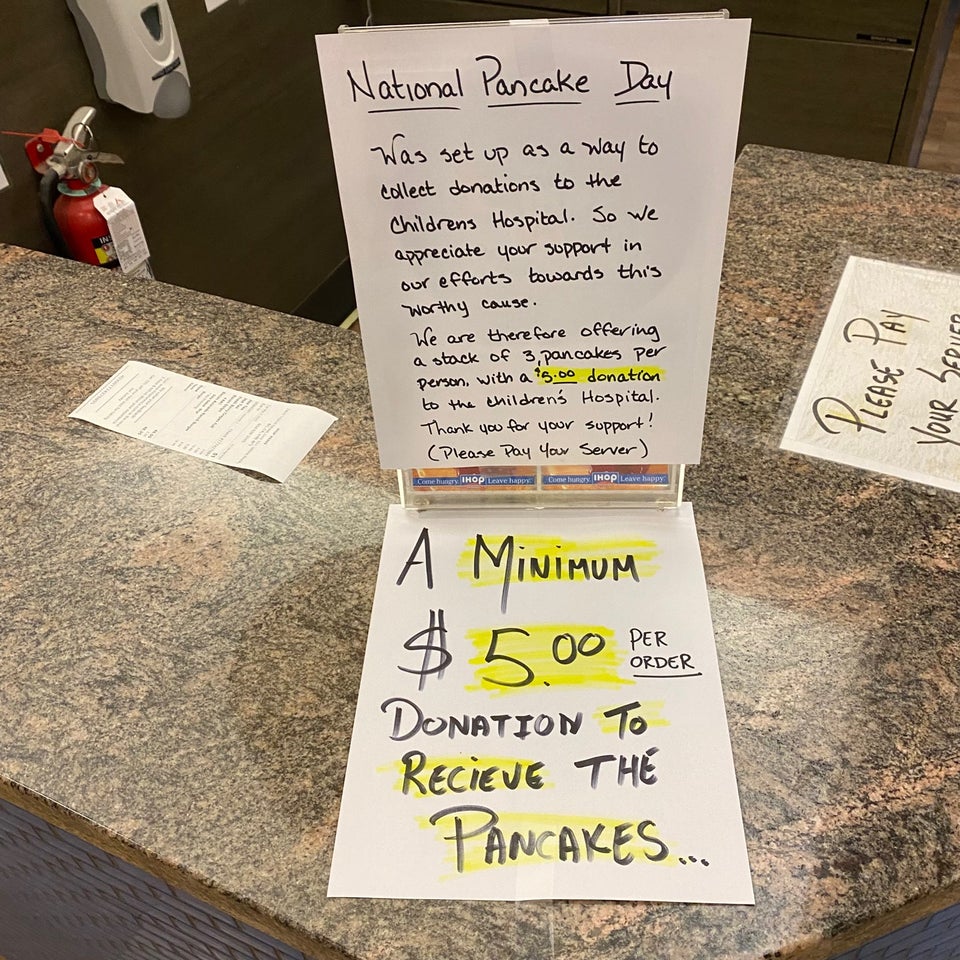 National Pancake Day
Was set up as a way to
collect donations to the
Childrens Hospital. So we
appreciate your support in
our efforts towards this
worthy cause.
We are therefore offering
a stack of 3, pancakes per
person, with a $5.00 donation
to the children's Hospital.
Thank you for your support!
(Please Pay Your Server)
Come hungry. IHOP Leave happy.
Come hungry. IHOP Leave happy.
A MINIMUM
$5.00 PER
ORDER
DONATION TO
RECIEVE THE
PANCAKES...
PLEASE PAY
YOUR SERVER